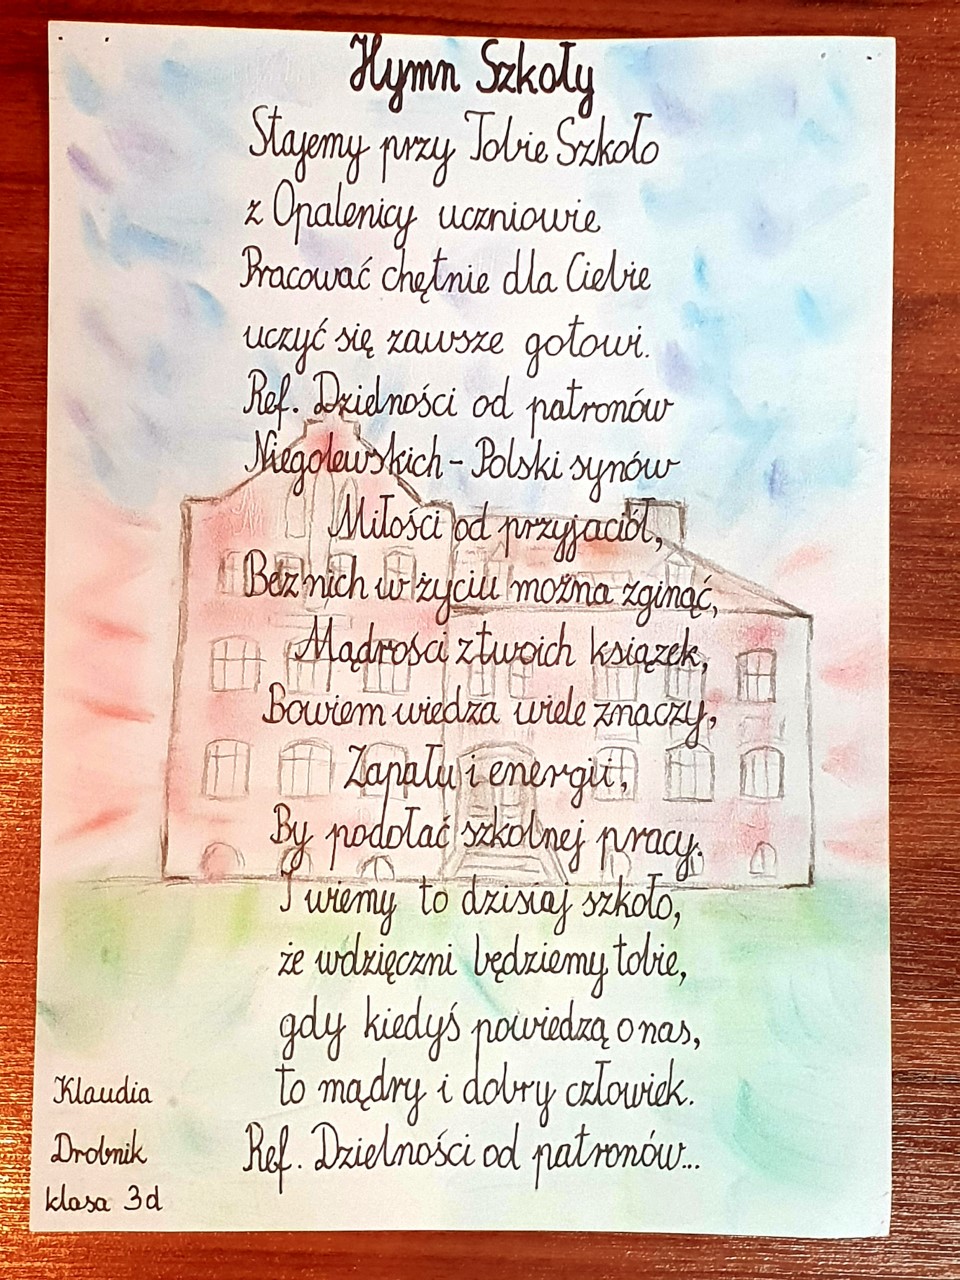 Hymn Szkoły
Stajemy przy Tobie Szkoło
z Opalenicy uczniowie
Pracować chętnie dla Ciebie
uczyć się zawsze gotowi.
Ref. Dzielności od patronów
Niegolewskich - Polski synów
Miłości od przyjaciół,
Bez nich w życiu można zginąć,
Mądrości z twoich książek,
Bowiem wiedza wiele znaczy,
Zapału i energii,
By podołać szkolnej pracy.
I wiemy to dzisiaj szkoło,
że wdzięczni będziemy tobie,
gdy kiedyś powiedzą o nas,
to mądry i dobry człowiek.
Ref. Dzielności od patronów...
Klaudia
Drobnik
klasa 3d